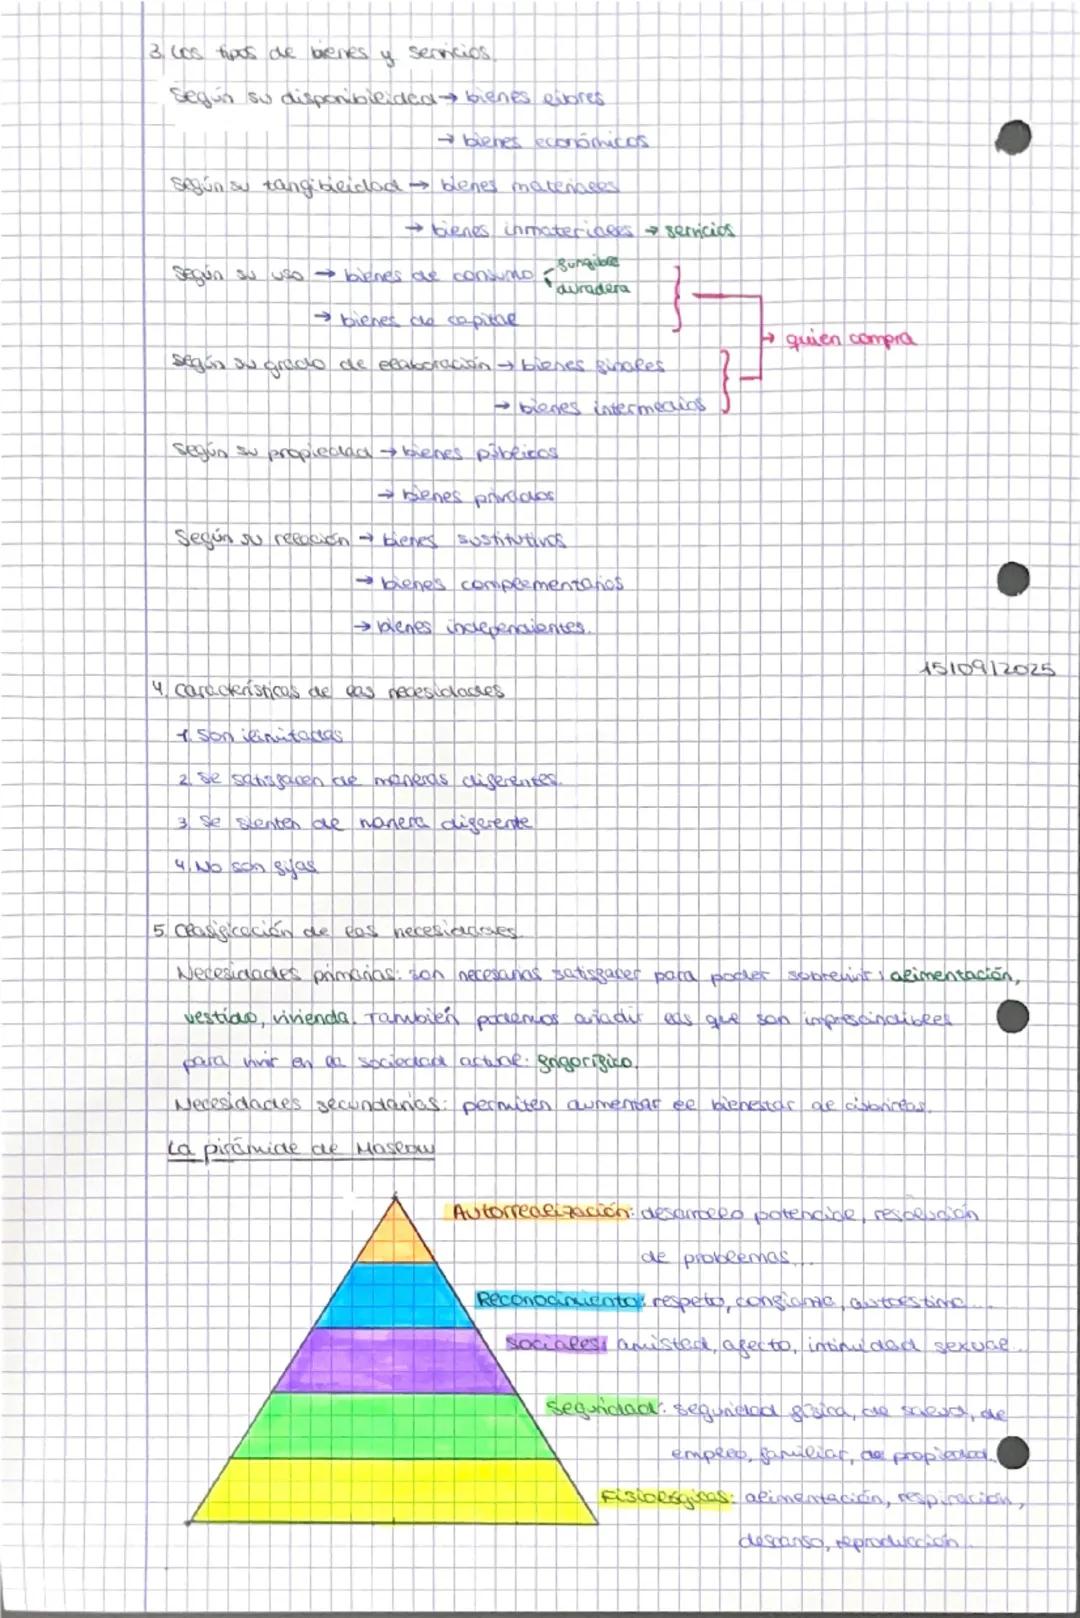 3. Los tipos de bienes y servicios.
Según su disponibilidad → bienes libres
→ bienes económicos
Según su tangibilidad → bienes materiales
→ bienes inmateriales → servicios
Según su uso → bienes de consumo fungible
duradera
→ bienes de capital
→ quien compra
Según su grado de elaboración → bienes finales
→ bienes intermedios
Según su propiedad → bienes públicos
→ bienes privados
Según su relación → bienes sustitutivos
→ bienes complementarios
→ bienes independientes.
15/09/2025
4. Características de las necesidades
1. Son ilimitadas
2. Se satisfacen de maneras diferentes.
3. Se sienten de manera diferente
4. No son fijas
5. Clasificación de las necesidades
Necesidades primarias: son necesarias satisfacer para poder sobrevivir: alimentación,
vestido, vivienda. También podemos añadir las que son imprescindibles
para vivir en la sociedad actual: frigorífico.
Necesidades secundarias: permiten aumentar el bienestar de
La pirámide de Maslow
Autorrealización: desarrollo potencial, resolución
de problemas...
Reconocimiento: respeto, confianza, autoestima...
Sociales: amistad, afecto, intimidad sexual...
Seguridad: seguridad física, de salud, de
empleo, familiar, de propiedad.
Fisiológicas: alimentación, respiración,
descanso, reproducción...